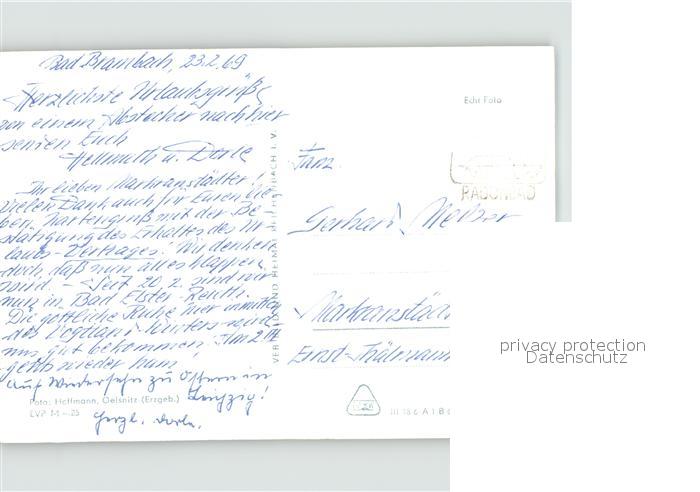 Bad Brambach, 23.2.69
Herzlichste Urlaubsgrüße
von einem Abstecher nach hier
senden Euch
Hellmuth u. Dorle
Ihr lieben Markranstädter!
Vielen Dank auch für Euren lie-
ben Kartengruß mit der Be-
stätigung des Erhaltes des Ur-
laubs-Vertrages! Wir denken
doch, daß nun alles klappen
wird. - Seit 20.2. sind wir
nun in Bad Elster-Reuth.
Die göttliche Ruhe hier inmitten
des Vogtland-Winters wird
uns gut bekommen! Am 2.III.
gehts wieder heim!
Auf Wiedersehn zu Ostern in
Leipzig!
Herzl. Dorle.
Foto: Hoffmann, Oelsnitz (Erzgeb.)
EVP M -.25
Echt Foto
RADONBAD
Fam.
Gerhard
Markranstäd
Ernst-Thälmann
III 18 6 A 1 B
privacy protection
Datenschutz